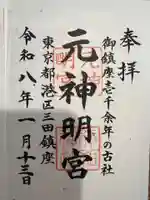 奉拝
御鎮座壱千余年の古社
元神明宮
東京都港区三田鎮座
令和八年一月十三日